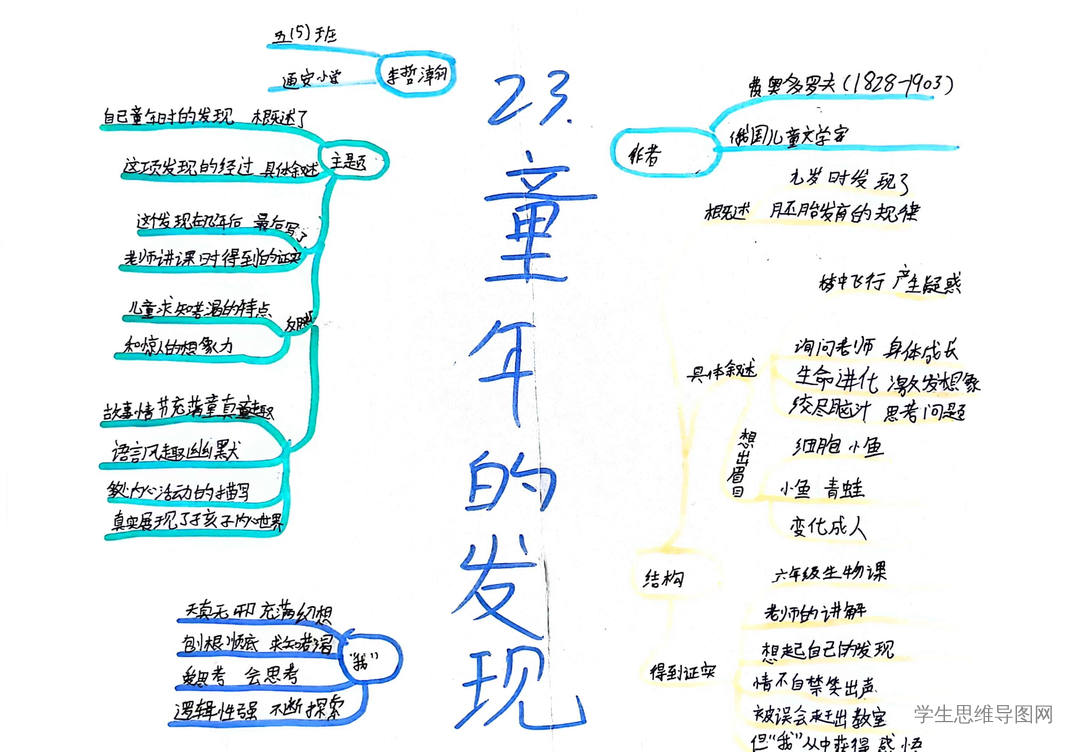 五(5)班
通安小学
李哲瀚
23.童年的发现
主题
自己童年时的发现 概述了
这项发现的经过 具体叙述
这个发现在几年后 最后写了
老师讲课时得到的证实
反映
儿童求知若渴的特点
和惊人的想象力
故事情节充满童真童趣
语言风趣幽默
内心活动的描写
真实展现了孩子内心世界
"我"
天真无邪 充满幻想
刨根 底 求知若渴
爱思考 会思考
逻辑性强 不断探索
作者
费奥多罗夫(1828-1903)
俄国儿童文学家
结构
概述
九岁时发现了
胚胎发育的规律
梦中飞行 产生疑惑
具体叙述
询问老师 身体成长
生命进化 激发想象
绞尽脑汁 思考问题
想出眉目
细胞 小鱼
小鱼 青蛙
变化成人
得到证实
六年级生物课
老师的讲解
想起自己的发现
情不自禁笑出声
被误会赶出教室
但"我"从中获得 感悟
学生思维导图网